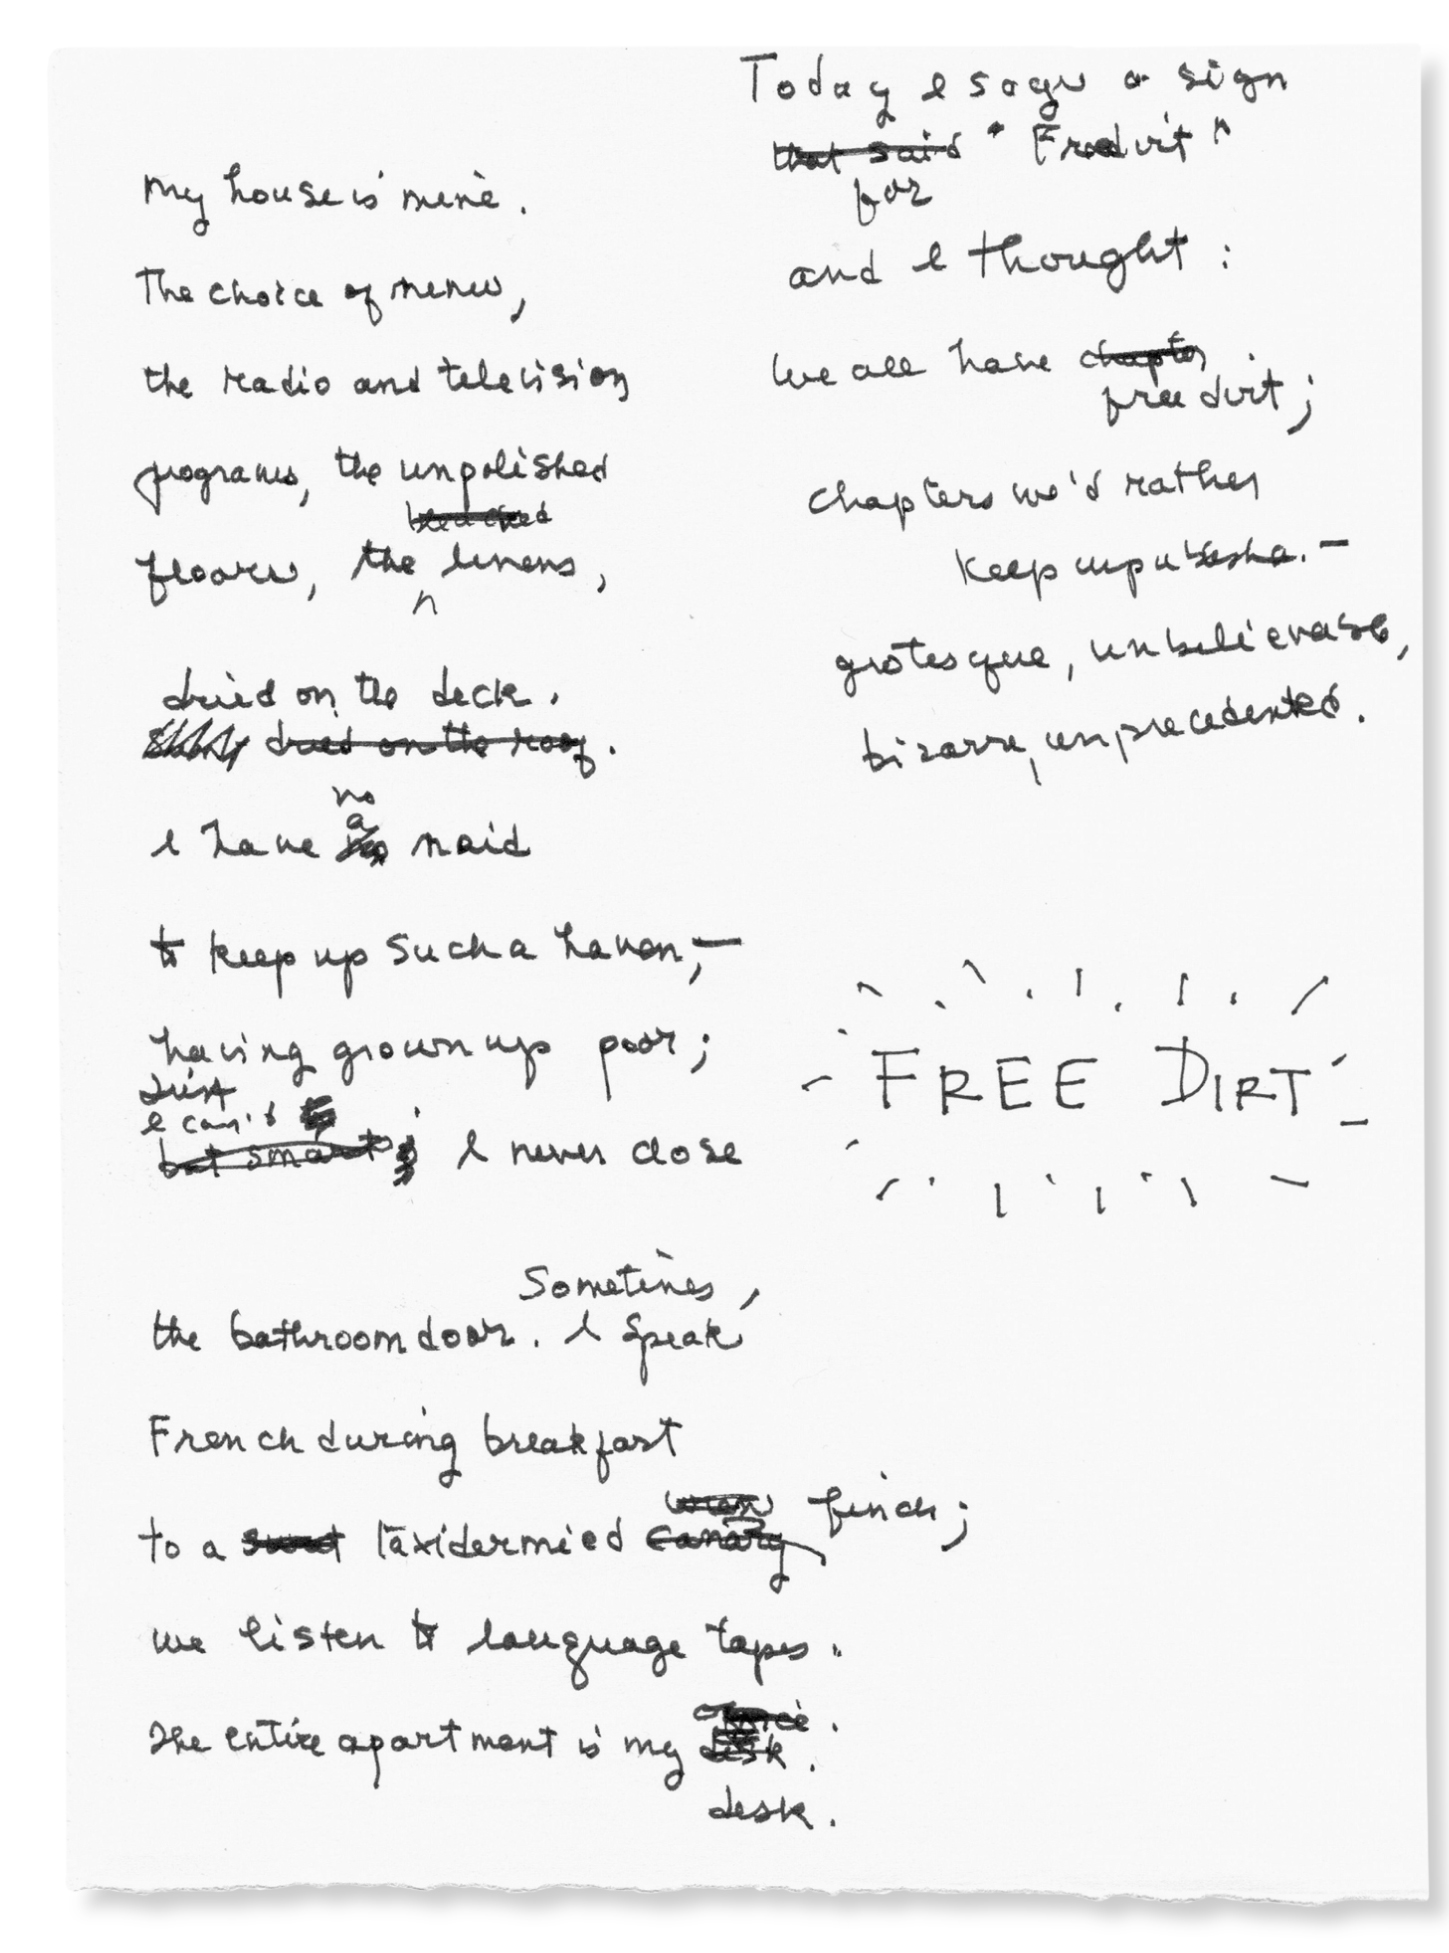 My house is mine.
The choice of menu,
the radio and television
programs, the unpolished
bleached
floors, the linens,
dried on the deck.
dried on the roof.
no
a
I have no maid
to keep up such a haven,—
having grown up poor;
dirt
I can't
but smart; I never close
Sometimes,
the bathroom door. I speak
French during breakfast
wren finch;
to a taxidermied canary
we listen to language tapes.
The entire apartment is my desk.
desk.
Today I saw a sign
that said "Free dirt"
for
and I thought:
We all have chapters
free dirt;
chapters we'd rather
keep unpublished.—
grotesque, unbelievable,
bizarre, unprecedented.
FREE DIRT